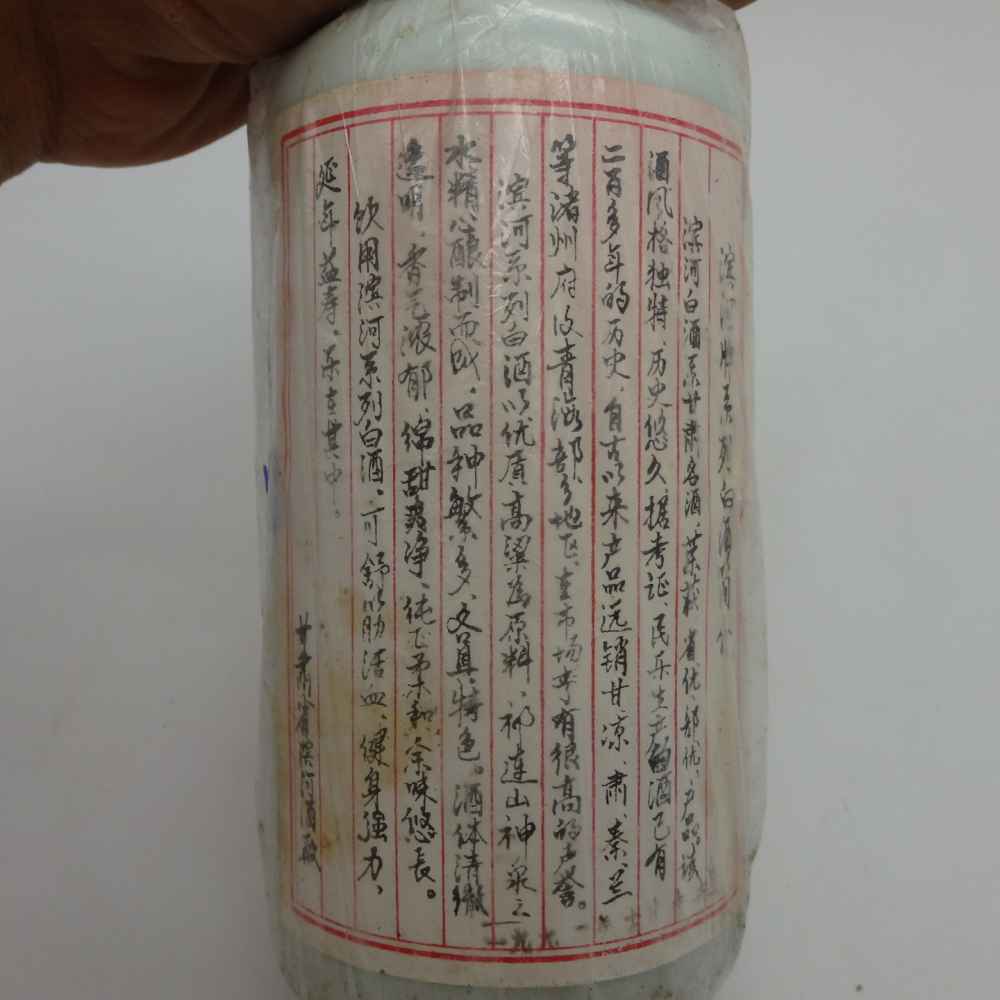 滨河牌系列白酒简介
滨河白酒系甘肃名酒，荣获省优部优产品，该
酒风格独特、历史悠久，据考证、民乐生产白酒已有
二百多年的历史，自古以来产品远销甘凉、肃、秦、兰
等诸州府及青海部分地区、在市场享有很高的声誉。
滨河系列白酒以优质高粱为原料、祁连山神泉之
水精心酿制而成，品种繁多、又具特色。酒体清澈
透明、香气浓郁、绵甜爽净、纯正柔和、余味悠长。
饮用滨河系列白酒、可舒筋活血、健身强力、
延年益寿、乐在其中。
甘肃省滨河酒厂
一九九一